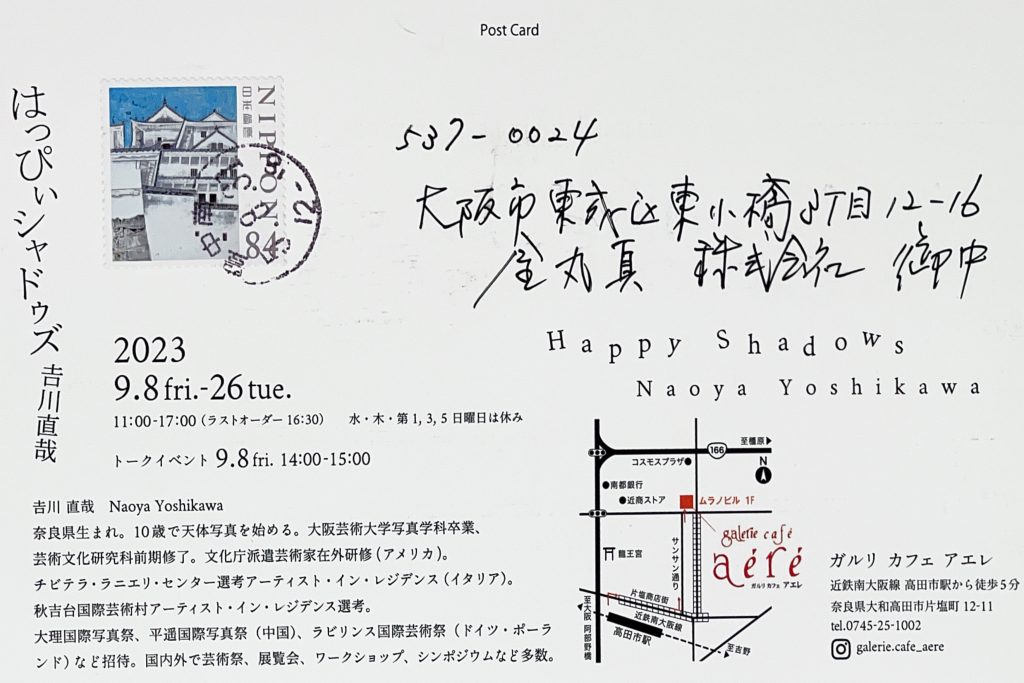 Post Card
はっぴぃシャドゥズ 𠮷川直哉
NIPPON
日本郵便
84
537-0024
大阪市東成区東小橋
丁目12-16
金丸真 株式会社 御中
Happy Shadows
Naoya Yoshikawa
2023
9.8 fri.-26 tue.
11:00-17:00(ラストオーダー 16:30) 水・木・第1, 3, 5日曜日は休み
トークイベント 9.8 fri. 14:00-15:00
𠮷川 直哉 Naoya Yoshikawa
奈良県生まれ。10歳で天体写真を始める。大阪芸術大学写真学科卒業、
芸術文化研究科前期修了。文化庁派遣芸術家在外研修(アメリカ)。
チビテラ・ラニエリ・センター選考アーティスト・イン・レジデンス(イタリア)。
秋吉台国際芸術村アーティスト・イン・レジデンス選考。
大理国際写真祭、平遥国際写真祭(中国)、ラビリンス国際芸術祭(ドイツ・ポーラ
ンド)など招待。国内外で芸術祭、展覧会、ワークショップ、シンポジウムなど多数。
166
至橿原
N
コスモスプラザ
南都銀行
近商ストア
ムラノビル 1F
龍王宮
サンサン通り
galerie café
aéré
ガルリ カフェ アエレ
片塩商店街
近鉄南大阪線
高田市駅
至大阪 阿部野橋
至吉野
ガルリ カフェ アエレ
近鉄南大阪線 高田市駅から徒歩5分
奈良県大和高田市片塩町 12-11
tel.0745-25-1002
galerie.cafe_aere